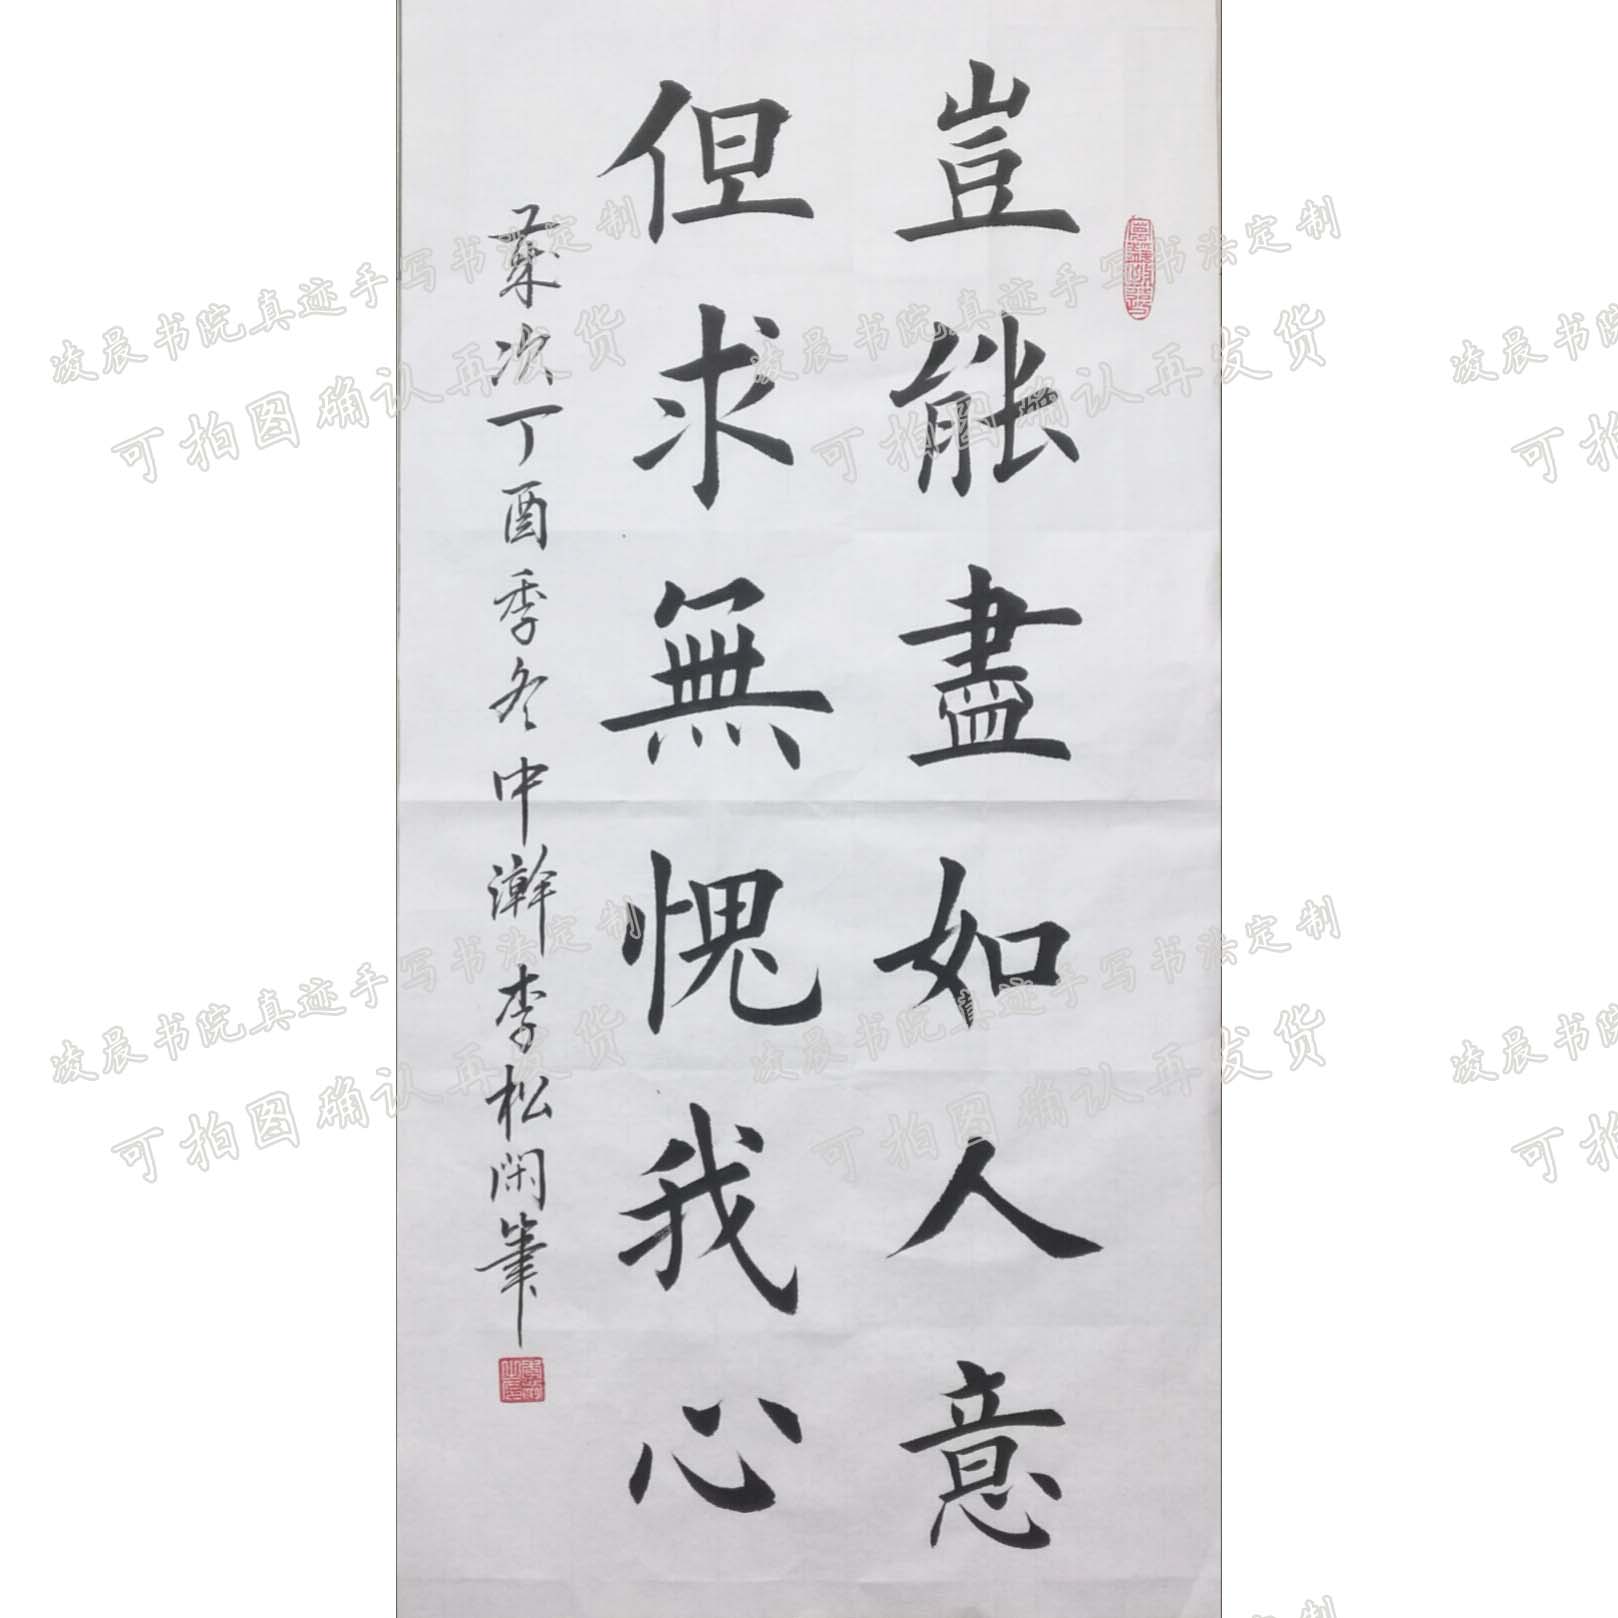 豈能盡如人意
但求無愧我心
歲次丁酉季冬中瀚李松閑筆
凌晨书院真迹手写书法定制
可拍图确认再发货
凌晨书院真迹手写书法定制
可拍图确认再发货
凌晨书院
可拍
凌晨书院真迹手写书法定制
可拍图确认再发货
凌晨书院真迹手写书法定制
可拍图确认再发货
凌晨书院
可拍